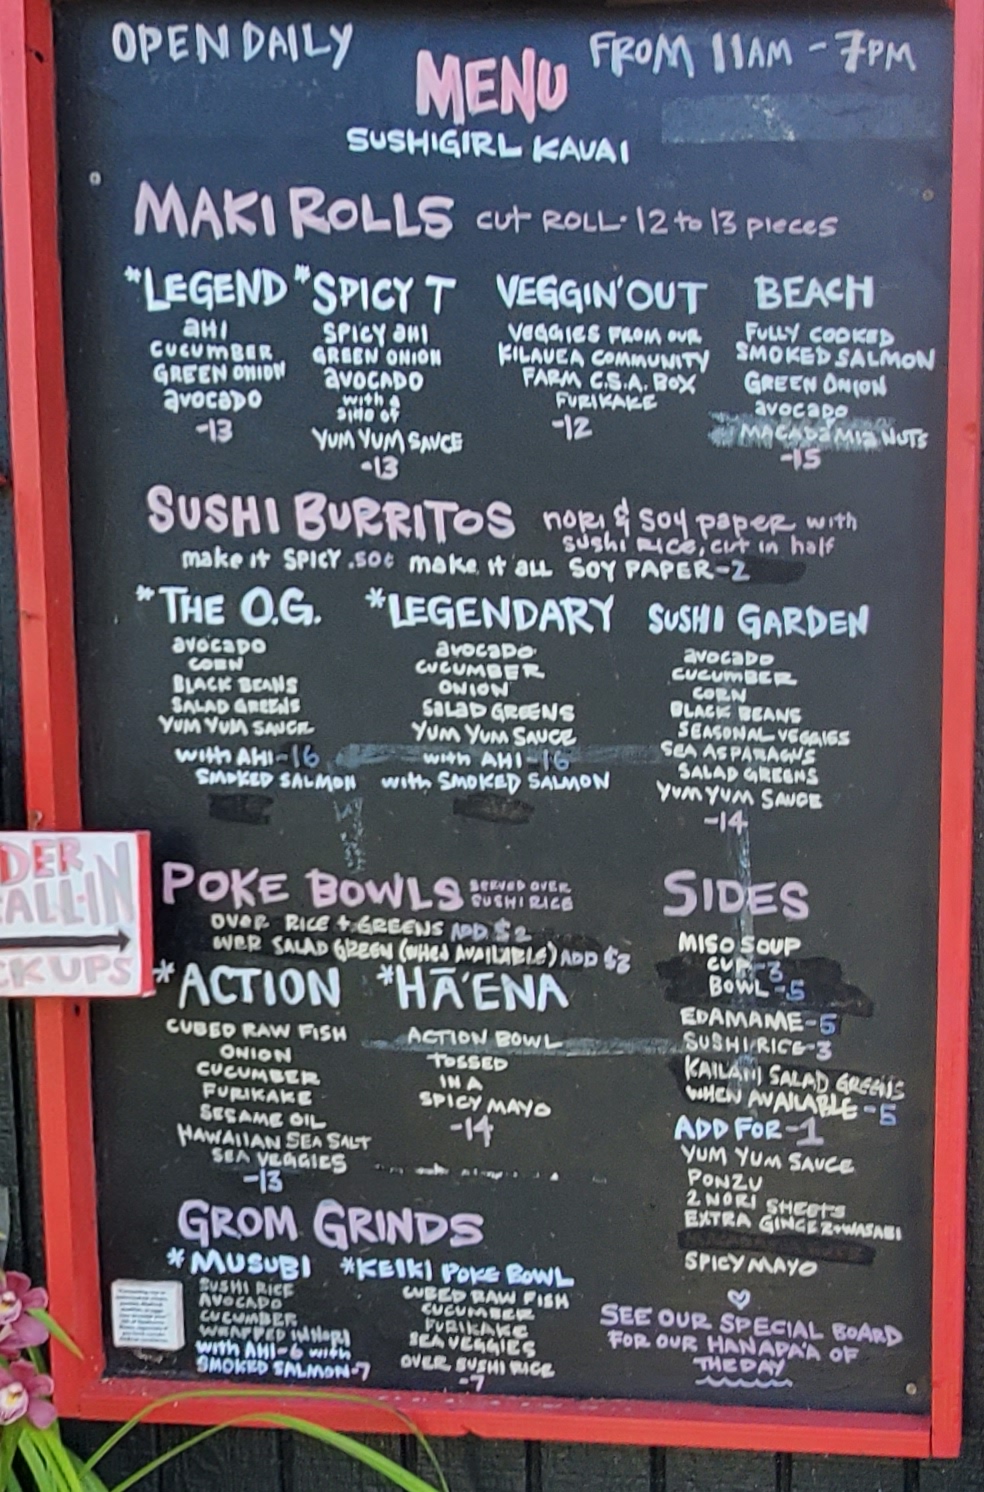 OPEN DAILY FROM 11AM - 7PM
MENU
SUSHIGIRL KAUAI
MAKI ROLLS CUT ROLL · 12 to 13 pieces
*LEGEND
AHI
CUCUMBER
GREEN ONION
AVOCADO
-13
*SPICY T
SPICY AHI
GREEN ONION
AVOCADO
with a
side of
YUM YUM SAUCE
-13
VEGGIN' OUT
VEGGIES FROM OUR
KILAUEA COMMUNITY
FARM C.S.A. BOX
FURIKAKE
-12
BEACH
FULLY COOKED
SMOKED SALMON
GREEN ONION
AVOCADO
MACADAMIA NUTS
-15
SUSHI BURRITOS nori & soy paper with
sushi rice, cut in half
make it SPICY .50¢ make it all SOY PAPER -2
*THE O.G.
AVOCADO
CORN
BLACK BEANS
SALAD GREENS
YUM YUM SAUCE
with AHI -16
SMOKED SALMON
*LEGENDARY
AVOCADO
CUCUMBER
ONION
SALAD GREENS
YUM YUM SAUCE
with AHI -16
with SMOKED SALMON
SUSHI GARDEN
AVOCADO
CUCUMBER
CORN
BLACK BEANS
SEASONAL VEGGIES
SEA ASPARAGUS
SALAD GREENS
YUM YUM SAUCE
-14
DER
CALL-IN
CK UPS
POKE BOWLS SERVED OVER
SUSHI RICE
OVER RICE + GREENS ADD $2
OVER SALAD GREEN (WHEN AVAILABLE) ADD $3
*ACTION
CUBED RAW FISH
ONION
CUCUMBER
FURIKAKE
SESAME OIL
HAWAIIAN SEA SALT
SEA VEGGIES
-13
*HĀ'ENA
ACTION BOWL
TOSSED
IN A
SPICY MAYO
-14
SIDES
MISO SOUP
CUP -3
BOWL -5
EDAMAME -5
SUSHI RICE -3
KAILANI SALAD GREENS
WHEN AVAILABLE -5
ADD FOR -1
YUM YUM SAUCE
PONZU
2 NORI SHEETS
EXTRA GINGER + WASABI
SPICY MAYO
GROM GRINDS
*MUSUBI
SUSHI RICE
AVOCADO
CUCUMBER
WRAPPED IN NORI
with AHI -6 with
SMOKED SALMON -7
*KEIKI POKE BOWL
CUBED RAW FISH
CUCUMBER
FURIKAKE
SEA VEGGIES
OVER SUSHI RICE
-7
SEE OUR SPECIAL BOARD
FOR OUR HANAPA'A OF
THE DAY